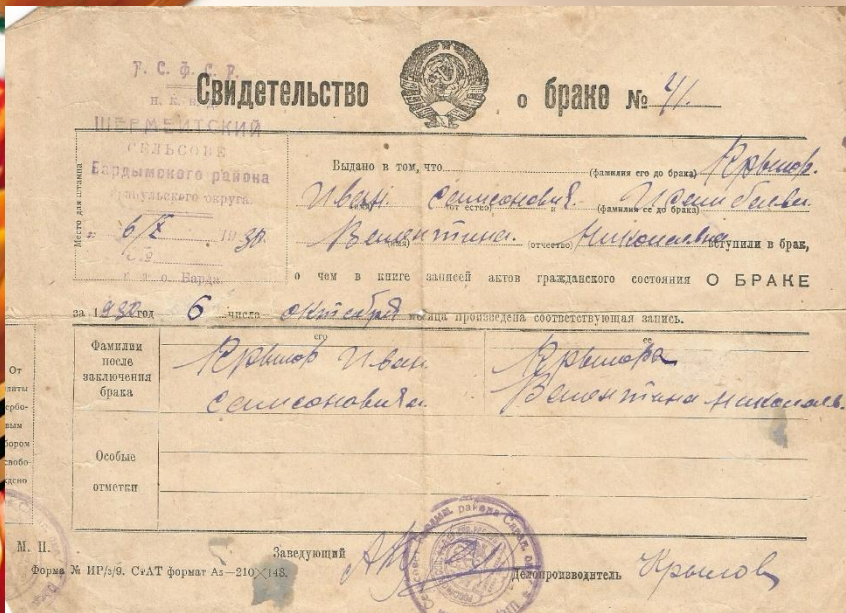 Р. С. Ф. С. Р.
Свидетельство о браке № 41.
Н. К. В. Д.
ШЕРМЕИТСКИЙ
СЕЛЬСОВЕ
Бардымского района
округа
Место для штампа
6/X 1930
Барда
Выдано в том, что (фамилия его до брака) Крылов.
Иван. (имя) Самсонович (отчество) и (фамилия ее до брака)
Валентина. (имя) (отчество) Николаевна вступили в брак,
о чем в книге записей актов гражданского состояния О БРАКЕ
за 1930 год 6 числа октября месяца произведена соответствующая запись.
Фамилии после заключения брака
его
Крылов Иван
Самсонович
ее
Крылова
Валентина Николаев.
Особые отметки
От
М. П.
Заведующий
Делопроизводитель Крылов
Форма № ИР/з/9. СтАТ формат А₅—210×148.